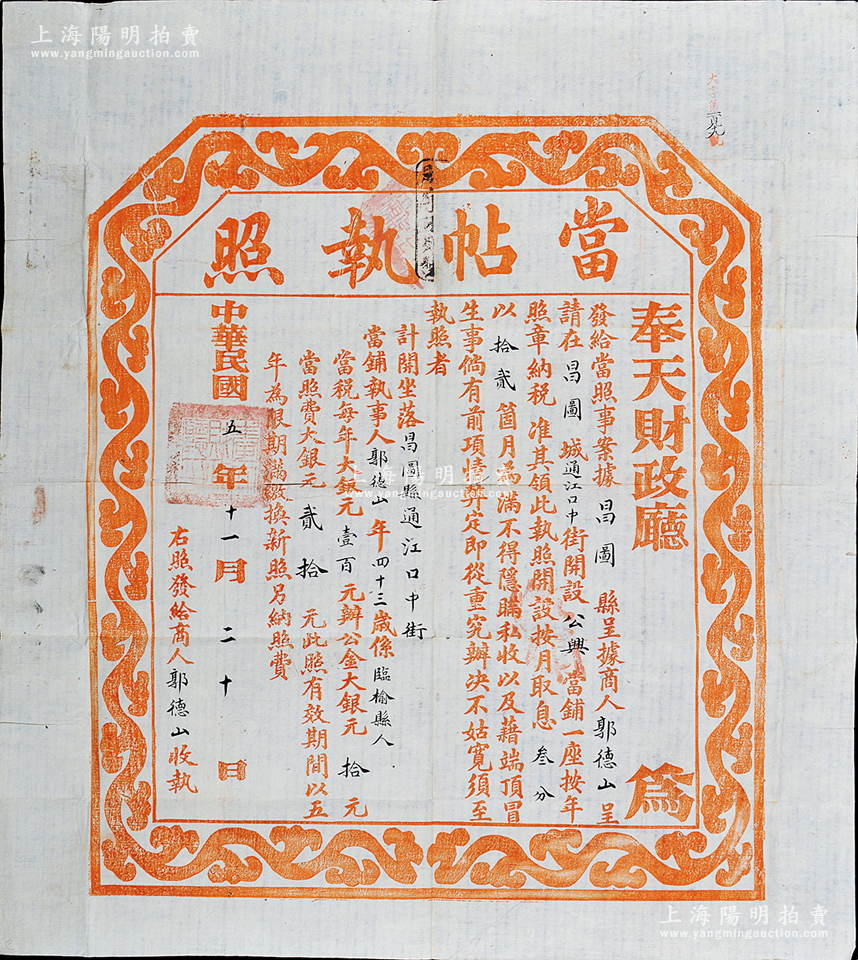 上海陽明拍賣
www.yangmingauction.com
當帖執照
奉天財政廳 爲
發給當照事案據昌圖縣呈據商人郭德山呈
請在昌圖城通江口中街開設公興當鋪一座按年
照章納稅准其領此執照開設按月取息叁分
以拾貳箇月爲滿不得隱瞞私收以及藉端頂冒
生事倘有前項情弊定即從重究辦决不姑寬須至
執照者
計開坐落昌圖縣通江口中街
當鋪執事人郭德山年四十三歲係臨榆縣人
當稅每年大銀元壹百元辦公金大銀元拾元
當照費大銀元貳拾元此照有效期間以五
年為限期滿繳換新照另納照費
中華民國五年十一月二十日
右照發給商人郭德山收執
上海陽明拍賣
www.yangmingauction.com
上海陽明拍賣
www.yangmingauction.com